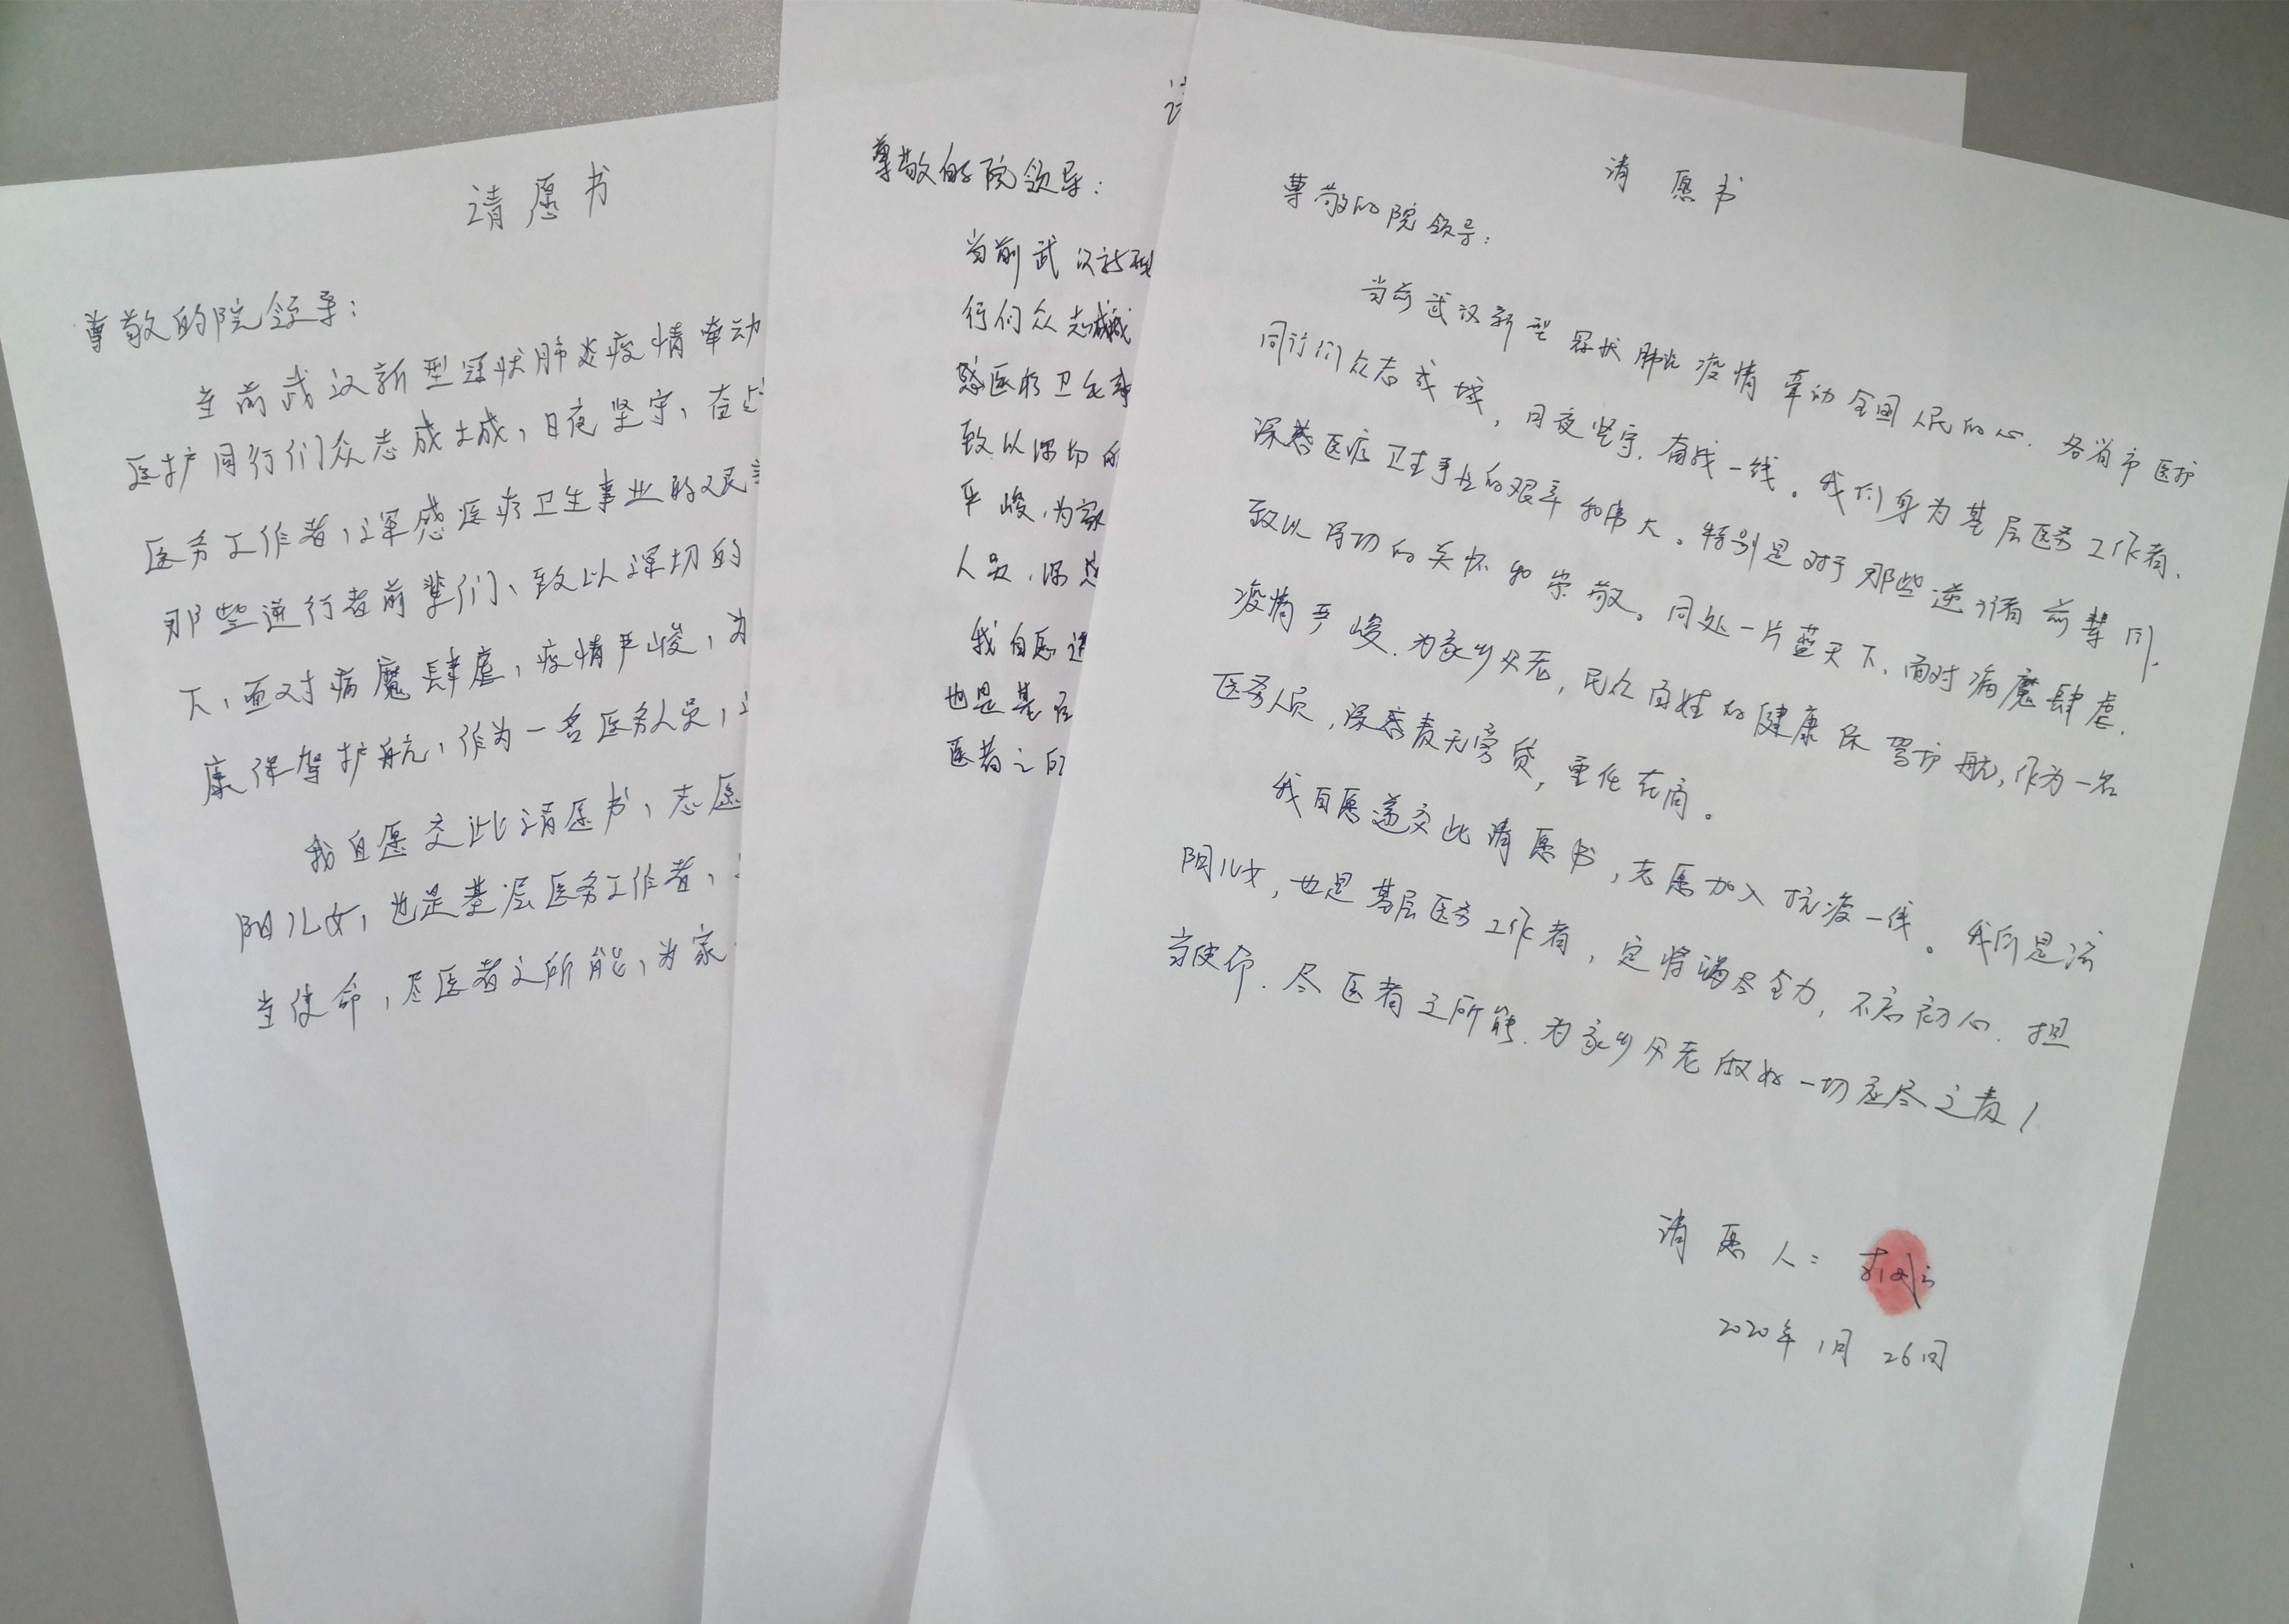 请愿书
尊敬的院领导：
当前武汉新型冠状肺炎疫情牵动
医护同行们众志成城，日夜坚守，在
医务工作者，深感医疗卫生事业的艰
那些逆行者前辈们、致以深切的
下，面对病魔肆虐，疫情严峻，为
康保驾护航，作为一名医务人员，
我自愿交此请愿书，志愿
阳儿女，也是基层医务工作者，
当使命，尽医者之所能，为家
尊敬的院领导：
当前武汉新型
行们众志成城
感医疗卫生事
致以深切的
严峻，为家
人员，深感
我自愿递
也是基层
医者之所
请愿书
尊敬的院领导：
当前武汉新型冠状肺炎疫情牵动全国人民的心．各省市医护
同行们众志成城，日夜坚守．奋战一线。我们身为基层医务工作者、
深感医疗卫生事业的艰辛和伟大。特别是对于那些逆行者前辈们，
致以深切的关怀和崇敬。同处一片蓝天下、面对病魔肆虐．
疫情严峻．为家乡父老，民众百姓的健康保驾护航，作为一名
医务人员，深感责无旁贷，重任在肩。
我自愿递交此请愿书，志愿加入抗疫一线。我们是
阳儿女，也是基层医务工作者，定将竭尽全力，不忘初心．担
当使命．尽医者之所能．为家乡父老做好一切应尽之责！
请愿人：
2020年1月26日